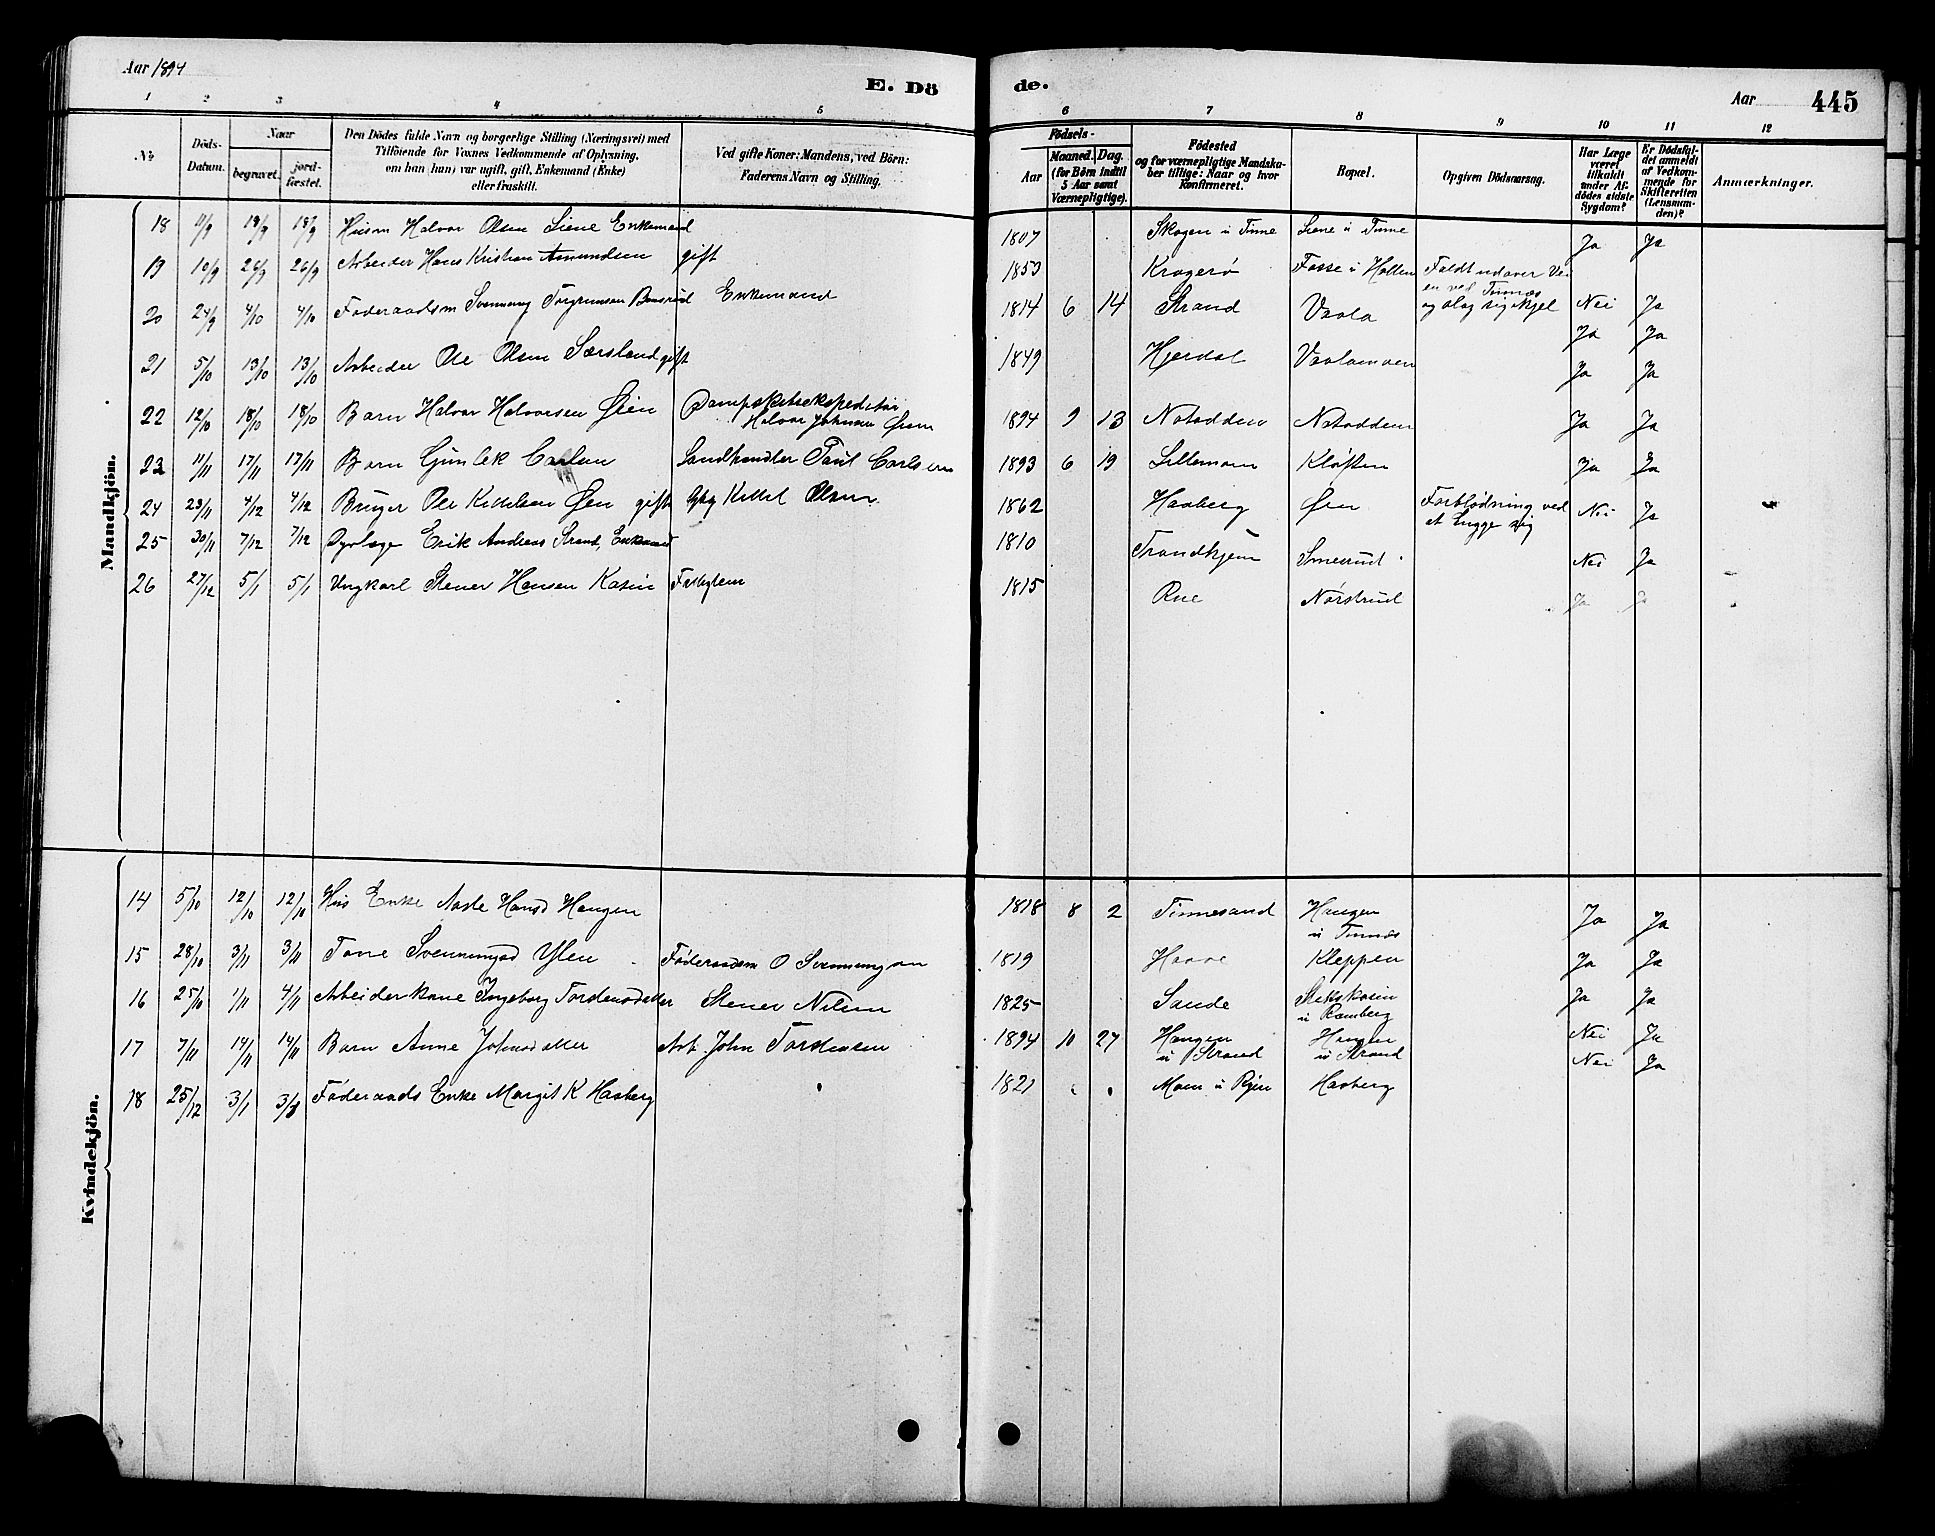 Aar 1894
E. Dö
de.
Aar
445
1 2 3 4 5 6 7 8 9 10 11 12
No
Döds-Datum.
Naar
begravet.
jord-fæstet.
Den Dödes fulde Navn og borgerlige Stilling (Næringsvei) med
Tilföiende for Voxnes Vedkommende af Oplysning,
om han (hun) var ugift, gift, Enkemand (Enke)
eller fraskilt.
Ved gifte Koner: Mandens, ved Börn:
Faderens Navn og Stilling.
Födsels-
Aar
Maaned. Dag.
(for Börn indtil
5 Aar samt
Værnepligtige).
Födested
og for værnepligtige Mandska-
ber tillige: Naar og hvor
Konfirmeret.
Bopæl.
Opgiven Dödsaarsag.
Har Læge
været
tilkaldt
under Af-
dödes sidste
Sygdom?
Er Dödsfal-
det anmeldt
af Vedkom-
mende for
Skifteretten
(Lensman-
den)?
Anmærkninger.
Mandkjön.
18 11/9 18/9 Husm Halvor Olsen Liene Enkemand 1807 Skogen i Tinne Liene i Tinne Ja Ja
19 10/9 26/9 26/9 Arbeider Hans Kristian Amundsen gift 1853 Kragerø Fosse i Hollen Faldt udover Vei-
en ved Tinnæs
og slog sig ihjel Nei Ja
20 24/9 4/10 4/10 Föderaadsm Svennung Torgrimsen Enkemand 1814 6 14 Strand Vaala Ja Ja
21 5/10 13/10 13/10 Arbeider Ole Olsen Særsland gift 1849 Hjerdal Vaalamoen Ja Ja
22 12/10 18/10 18/10 Barn Halvor Halvorsen Øien Dampskibsekspeditør
Halvor Johnsen Øien 1894 9 13 Notodden Notodden Ja Ja
23 11/11 17/11 17/11 Barn Gunlek Carlsen Landhandler Paul Carlsen 1893 6 19 Lillemoen Kløften Ja Ja
24 23/11 4/12 4/12 Bruger Ole Kittelsen Øen gift Gbg Kittel Olsen 1862 Haaberg Øen Forblødning ved
at hugge sig Nei Ja
25 30/11 7/12 7/12 Dyrlæge Erik Andreas Strand, Enkemand 1810 Trondhjem Smerud Nei Ja
26 27/12 5/1 5/1 Ungkarl Stener Hansen Kasin Fatiglem 1815 Rue Nørstrud Ja Ja
Kvindekjön.
14 5/10 12/10 12/10 Hus Enke Aaste Hansd Haugen 1818 8 2 Tinnesand Haugen
i Tinnæs Ja Ja
15 28/10 3/11 3/11 Tone Svennungsd Ylen Föderaadsm O Svennungsen 1819 Haave Kleppen Ja Ja
16 25/10 1/11 4/11 Arbeiderkone Ingeborg Tordensdatter Stener Nilsen 1825 Sande
i Ramberg Ja Ja
17 7/11 14/11 14/11 Barn Anne Johnsdatter Arb John Torstensen 1894 10 27 Haugen
i Strand Haugen
i Strand Nei Ja
18 25/12 3/1 3/1 Föderaads Enke Margit K Haaberg 1821 Moen i Haaberg Nei Ja